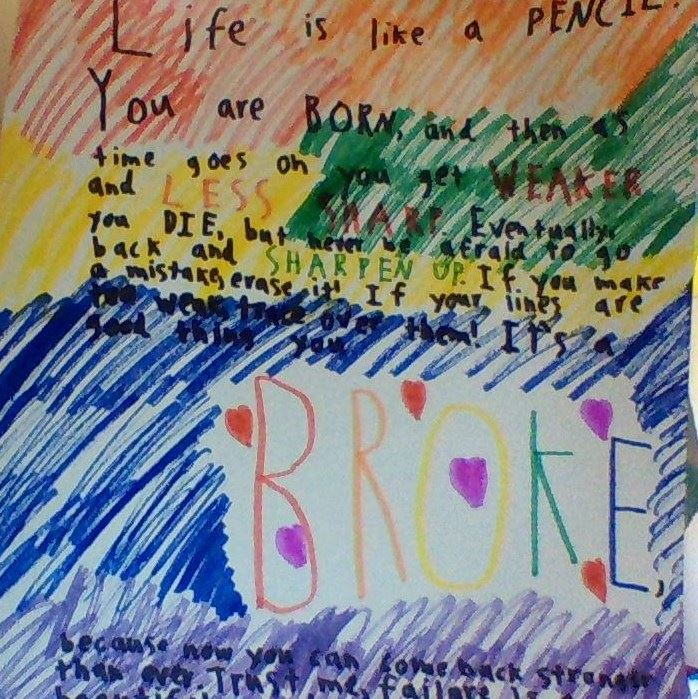 Life is like a PENCIL.
You are BORN, and then as
time goes on you get WEAKER
and LESS SHARP. Eventually,
you DIE, but never be afraid to go
back and SHARPEN UP. If you make
a mistake, erase it! If your lines are
too weak, trace over them! It's a
good thing you
BROKE,
because now you can come back stronger
than ever. Trust me, failure is